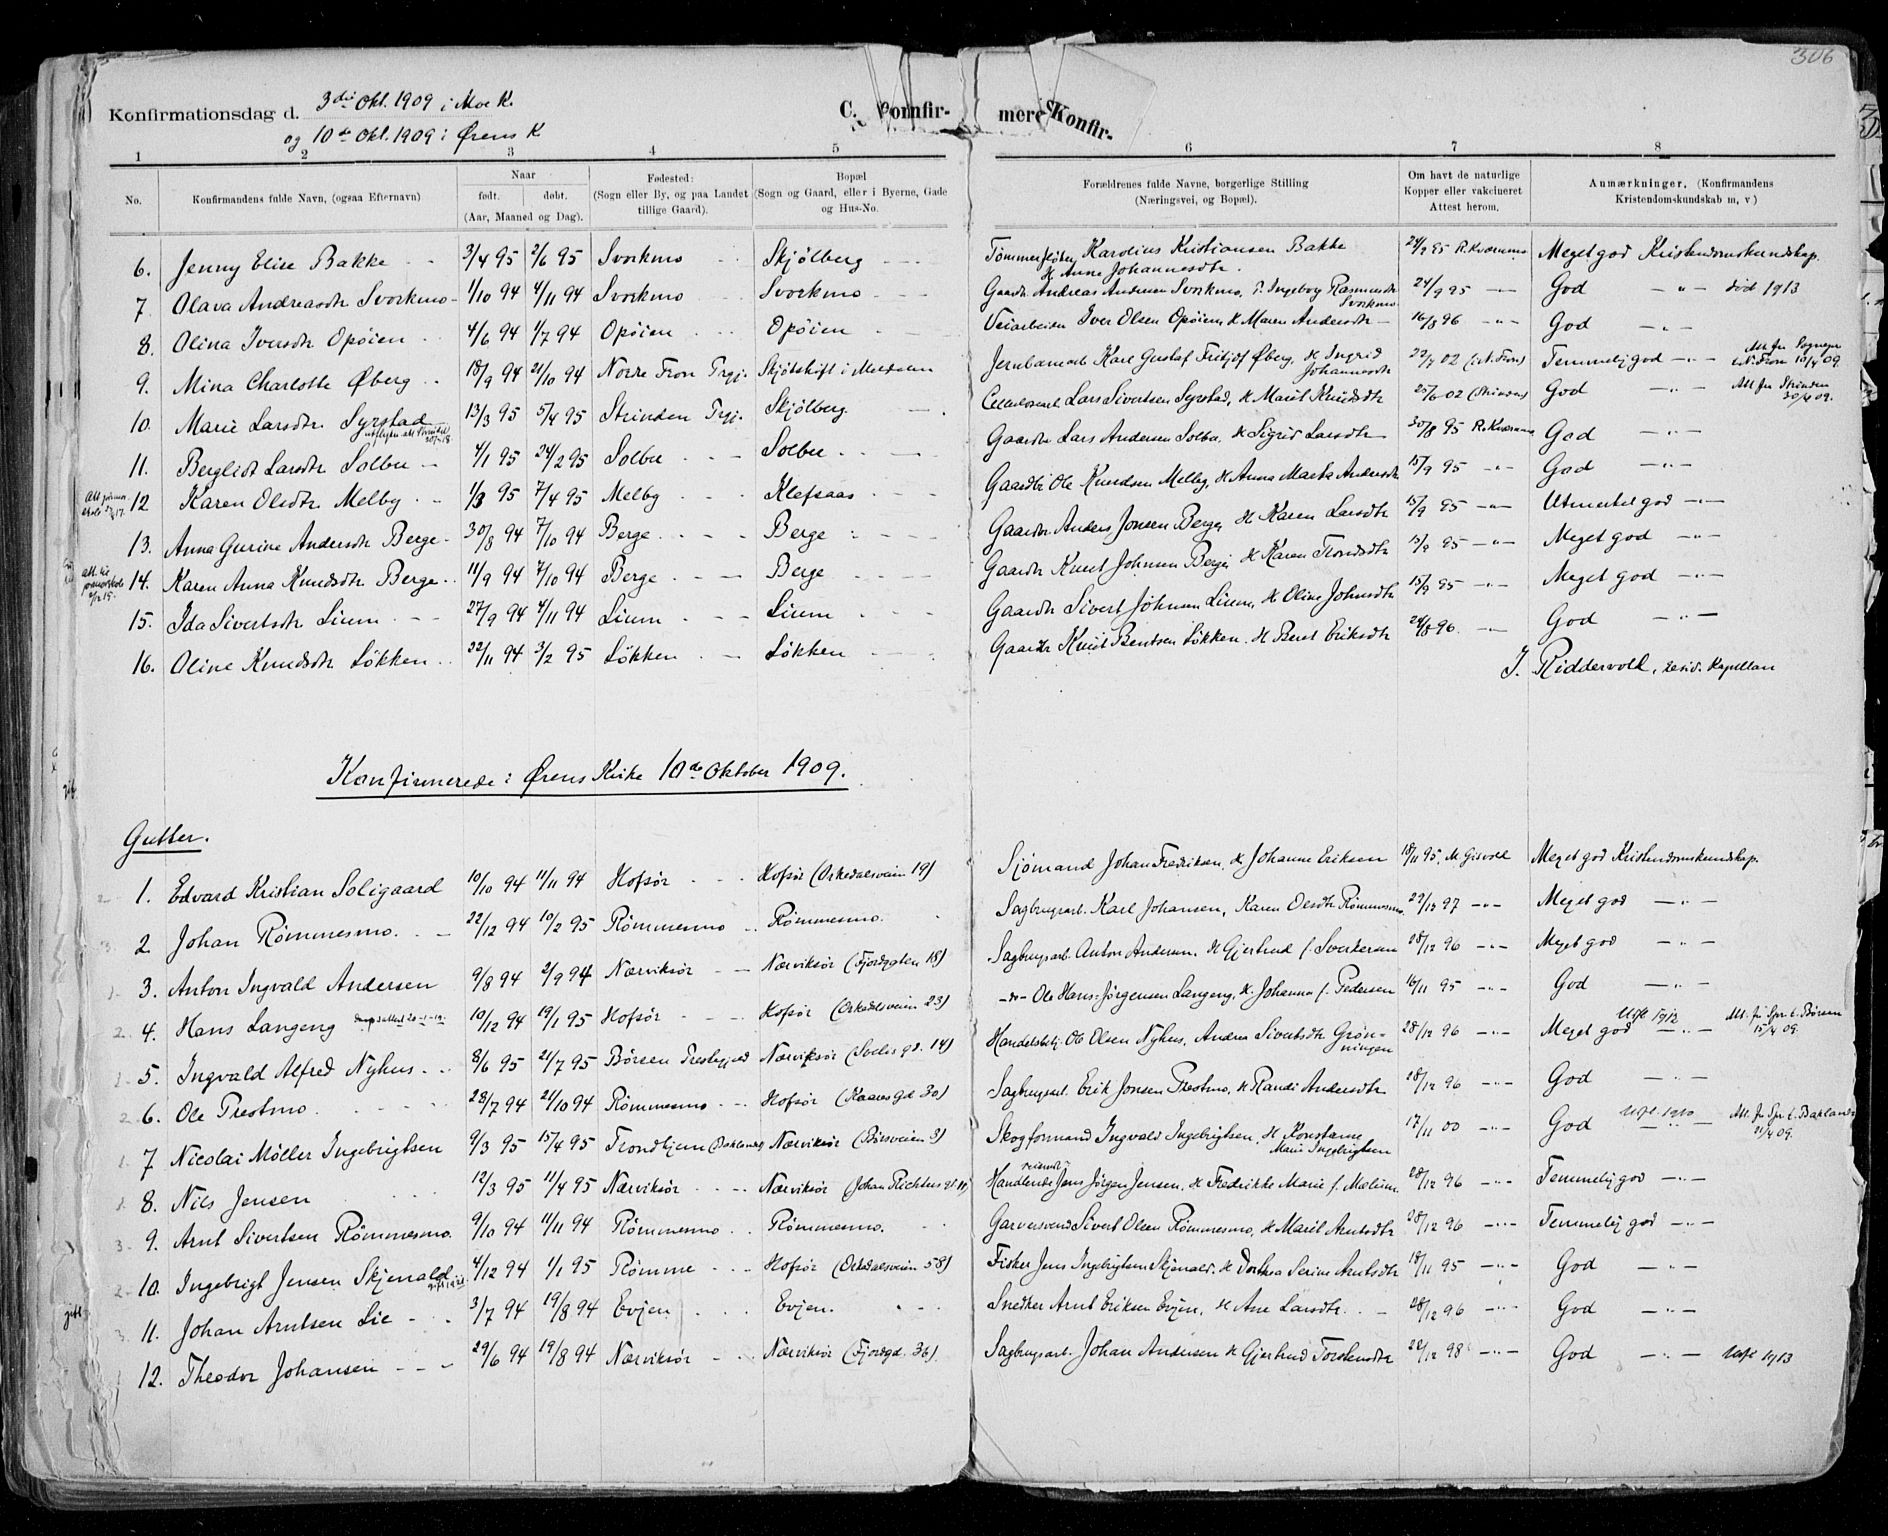 306
Konfirmationsdag d. 3die Okt. 1909 i Moe K.
og 10de Okt. 1909 i Ørens K
C. Comfir- mere Konfir-
1 2 3 4 5 6 7 8
No. Konfirmandens fulde Navn, (ogsaa Efternavn) Naar født. døbt. (Aar, Maaned og Dag). Fødested: (Sogn eller By, og paa Landet tillige Gaard). Bopæl (Sogn og Gaard, eller i Byerne, Gade og Hus-No. Forældrenes fulde Navne, borgerlige Stilling (Næringsvei, og Bopæl). Om havt de naturlige Kopper eller vakcineret Attest herom. Anmærkninger. (Konfirmandens Kristendomskundskab m, v)
6. Jenny Elise Bakke 3/4 95 2/6 95 Svorkmo Skjølberg Tømmerfløter Karolius Kristiansen Bakke H. Anne Johannesdtr. 24/9 95 R. Kværnmo Meget god Kristendomskundskap.
7. Olava Andreasdtr Svorkmo 1/10 94 4/11 94 Svorkmo Svorkmo Gaardbr. Andreas Andersen Svorkmo, P. Ingeborg Rasmusdtr Svorkmo 24/9 95 -"- God -"- død 1913
8. Olina Iversdtr Opøien 4/6 94 1/7 94 Opøien Opøien Veiarbeider Iver Olsen Opøien, H Maren Andersdtr 16/8 96 -"- God -"-
9. Mina Charlotte Øberg 18/9 94 21/10 94 Nordre Fron Prgj. Skjøtskift i Meldalen Jernbanearb. Karl Gustaf Fritjof Øberg, H Ingrid Johannesdtr 22/7 02 (i N. Fron) Temmelig god -"- Att. fr. Sognepr i N. Fron 10/4 09.
10. Marie Larsdtr. Syrstad 13/3 95 5/4 95 Strinden Prgj. Skjølberg Cellulosearb. Lars Sivertsen Syrstad, H Marit Knudsdtr 25/6 02 (Strinden) God -"- Att fr Strinden 30/4 09.
11. Bergliot Larsdtr Solbu 4/1 95 24/2 95 Solbu Solbu Gaardbr Lars Andersen Solbu, H Sigrid Larsdtr 30/8 95 R. Kværnmo God -"-
12 Karen Olsdtr Melby 1/3 95 7/4 95 Melby Klefsaas Gaardbr Ole Knudsen Melby, H Anna Marta Andersdtr 15/9 95 -"- God -"-
13. Anna Gurine Andersdtr Berge 30/8 94 7/10 94 Berge Berge Gaardbr Anders Jonsen Berge, H Karen Larsdtr 15/9 95 -"- Utmerket god -"-
14. Karen Anna Knudsdtr Berge 11/9 94 7/10 94 Berge Berge Gaardbr Knut Johnsen Berge, H Karen Trondsdtr 15/9 95 -"- Meget god -"-
15. Ida Sivertsdtr Lium 27/9 94 4/11 94 Lium Lium Gaardbr Sivert Johnsen Lium, H Oline Johnsdtr 15/9 95 -"- Meget god -"-
16. Oline Knudsdtr Løkken 22/11 94 3/2 95 Løkken Løkken Gaardbr Knut Bentsen Løkken. H Beret Eriksdtr 24/8 96. -"- God -"-
J. Riddervold, resid. Kapellan
Konfirmerede i Ørens Kirke 10de Oktober 1909.
Gutter.
1. Edvard Kristian Soligaard 10/10 94 11/11 94 Hofsør Hofsør (Orkedalsveien 19) Sjömand Johan Fredriksen, H. Johanne Eriksen 18/11 95, M. Gisvold Meget god Kristendomskundskap.
2. Johan Rømmesmo. 22/12 94 10/2 95 Rømmesmo Rømmesmo. Sagbrugsarb. Karl Johansen, Karen Olsdtr Rømmesmo. 29/12 97 -"- Meget god -"-
3. Anton Ingvald Andersen 9/8 94 2/9 94 Nærviksør Nærviksør (Fjordgaten 18) Sagbrugsarb. Anton Andersen, H Gjertrud f. Sverkersen 28/12 96 -"- Meget god -"-
4. Hans Langeng 10/12 94 19/1 95 Hofsør Hofsør (Orkedalsveien 23) -"- Ole Hans Jörgensen Langeng, H. Johanna f. Pedersen 16/11 95 -"- God -"-
5. Ingvald Alfred Nyhus 8/6 95 21/7 95 Börsen Prestegjeld Nærviksør (Sveles gt. 14) Handelsbetj. Ole Olsen Nyhus, Andrea Sivertsdtr Grönningen 28/12 96 -"- Meget god -"- Utfl 1912 Att. fr Spr. t. Börsen 15/4 09.
6. Ole Prestmo 28/7 94 21/10 94 Rømmesmo Hofsør (Kaaresgd 30) Sagbrugsarb. Erik Jonsen Prestmo, H Randi Andersdtr 28/12 96 -"- God -"-
7 Nicolai Möller Ingebrigtsen 9/3 95 15/4 95 Trondhjem (Baklandet) Nærviksør (Börsveien 3) Skogformand Ingvald Ingebrigtsen, H Konstanse Marie Ingebrigtsen 17/11 00 -"- God Utfl. 1910 Att. fr Spr t. Baklandet 21/4 09.
8. Nils Jensen 12/3 95 11/4 95 Nærviksør Nærviksør (Johan Richters gt 11) Handelsreisende Jens Jörgen Jensen, H Fredrikke Marie f. Mælum 28/12 96 -"- Temmelig god -"-
9. Arnt Sivertsen Rømmesmo. 9/10 94 11/11 94 Rømmesmo Rømmesmo. Garversvend Sivert Olsen Rømmesmo, H Marit Arntsdtr 28/12 96 -"- Temmelig god -"-
10. Ingebrigt Jensen Skjenald 4/12 94 1/1 95 Rømme Hofsør (Orkedalsveien 58) Fisker Jens Ingebrigtsen Skjenald, H Dorthea Serine Arntsdtr 18/11 95 -"- God -"-
11. Johan Arntsen Lie 3/7 94 19/8 94 Evjen Evjen. Snedker Arnt Eriksen Evjen, H Ane Larsdtr. 28/12 96 -"- God -"-
12. Theodor Johansen 29/6 94 19/8 94 Nærviksør Nærviksør (Fjordgd. 36) Sagbrugsarb. Johan Andersen H Gjertrud Torstensdtr 22/12 98 -"- God -"- Utfl 1913